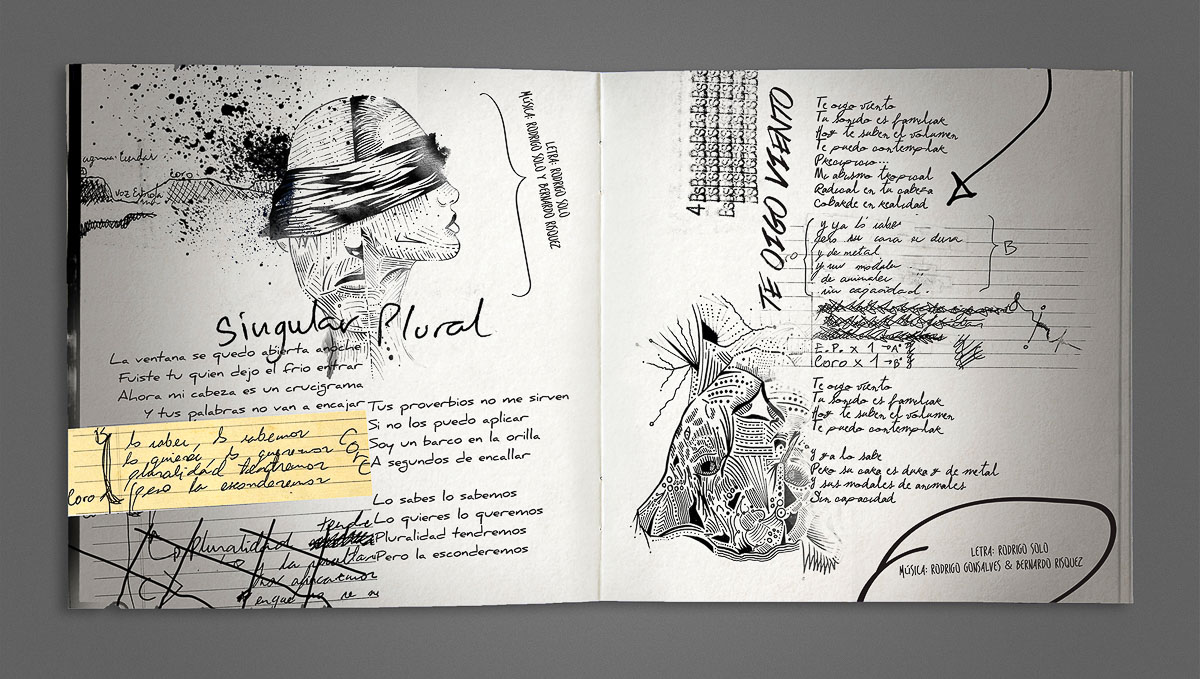 LETRA: RODRIGO SOLO
MÚSICA: RODRIGO SOLO Y BERNARDO RISQUEZ
coro
voz Estrofa
Singular Plural
La ventana se quedo abierta anoche
Fuiste tu quien dejo el frio entrar
Ahora mi cabeza es un crucigrama
Y tus palabras no van a encajar
lo saber, lo sabemos
lo quieres lo queremos
pluralidad tendremos
pero la esconderemos
Coro
Coro
pluralidad
Tus proverbios no me sirven
Si no los puedo aplicar
Soy un barco en la orilla
A segundos de encallar
Lo sabes lo sabemos
Lo quieres lo queremos
Pluralidad tendremos
Pero la esconderemos
TE OIGO VIENTO
Te oigo viento
Tu sonido es familiar
Hoy te suben el volumen
Te puedo contemplar
Precipicio...
Mi abismo tropical
Radical en tu cabeza
Cobarde en realidad
y ya lo sabe
pero su cara es dura
y de metal
y sus modales
de animales
sin capacidad.
B
E.P. x 1 → A
Coro x 1 → B
Te oigo viento
Tu sonido es familiar
Hoy te suben el volumen
Te puedo contemplar
Y ya lo sabe
Pero su cara es dura y de metal
Y sus modales de animales
Sin capacidad
LETRA: RODRIGO SOLO
MÚSICA: RODRIGO GONSALVES & BERNARDO RISQUEZ